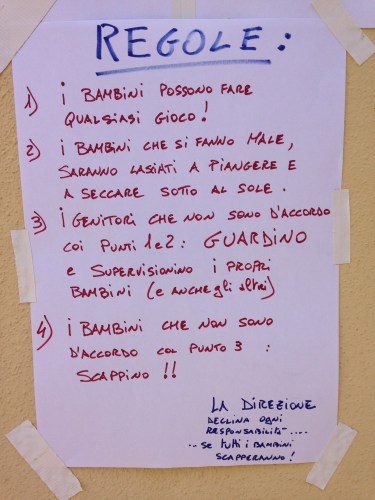 REGOLE:
1) i BAMBINI POSSONO FARE
QUALSIASI GIOCO!
2) i BAMBINI CHE SI FANNO MALE,
SARANNO LASIATI A PIANGERE E
A SECCARE SOTTO AL SOLE.
3) i GENITORI CHE NON SONO D'ACCORDO
COI PUNTI 1 e 2: GUARDINO
e SUPERVISIONINO i PROPRI
BAMBINI (e ANCHE gli altri)
4) i BAMBINI CHE NON SONO
D'ACCORDO COL PUNTO 3 :
SCAPPINO !!
LA DIREZIONE
DECLINA OGNI
RESPONSABILITÀ....
...se tutti i BAMBINI
SCAPPERANNO!